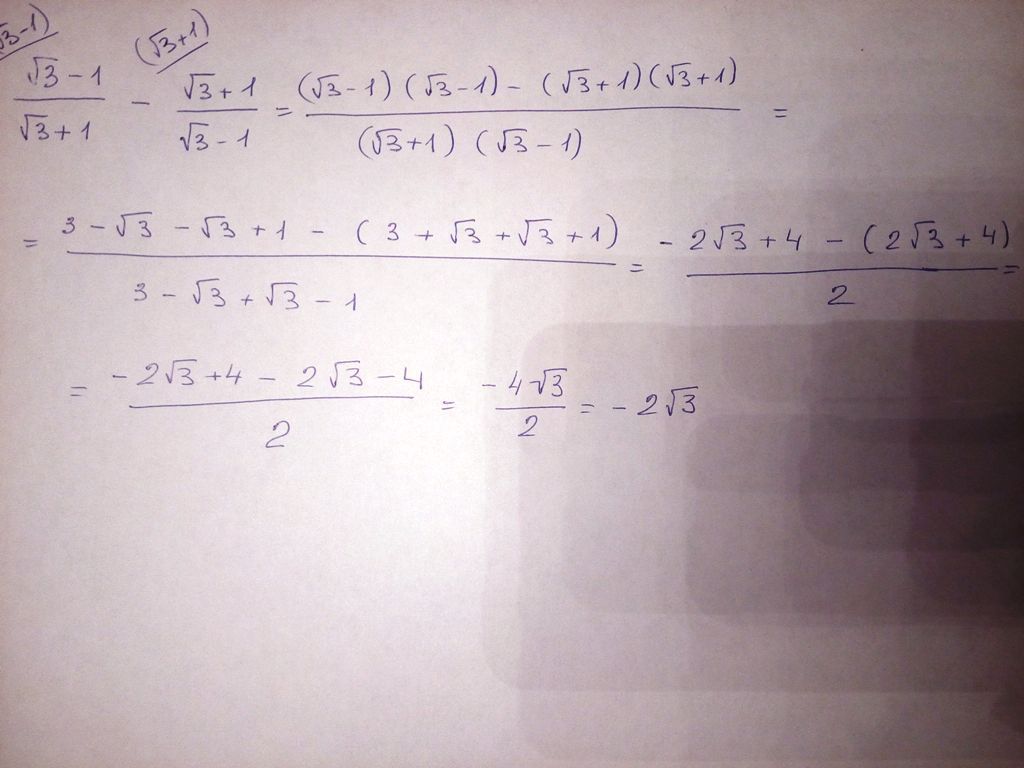 (√3-1) (√3+1)
(√3 - 1)/(√3 + 1) - (√3 + 1)/(√3 - 1) = ((√3 - 1) (√3 - 1) - (√3 + 1) (√3 + 1))/((√3 + 1) (√3 - 1)) =
= (3 - √3 - √3 + 1 - (3 + √3 + √3 + 1))/(3 - √3 + √3 - 1) = (-2√3 + 4 - (2√3 + 4))/2 =
= (-2√3 + 4 - 2√3 - 4)/2 = (-4√3)/2 = -2√3